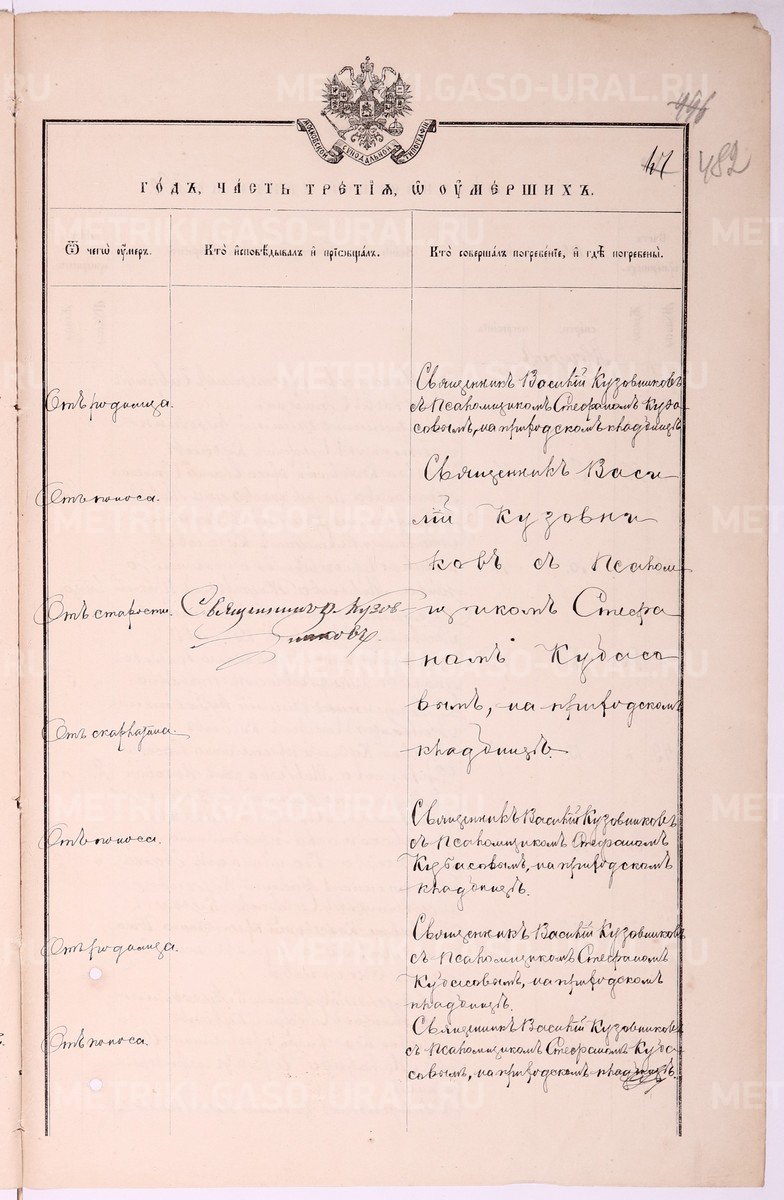 496
47 482
МОСКОВСКОЙ СѴНОДАЛЬНОЙ ТИПОГРАФІИ
ГОДЪ, ЧАСТЬ ТРЕТІЯ, Ѿ ОУМЕРШИХЪ.
Ѿ чегѡ оумеръ.
Кто исповѣдывалъ и пріѡбщалъ.
Кто совершалъ погребеніе, и гдѣ погребены.
Отъ родимца.
Священникъ Василій Кузовников
съ Псаломщикомъ Стефаномъ Куба-
совымъ, на приходскомъ кладбищѣ
Отъ поноса.
Священникъ Васи-
лій Кузовни
ковъ съ Псалом
щикомъ Стефа
номъ Кубасо
вымъ, на приходскомъ
кладбищѣ.
Отъ старости.
Священникъ Кузов-
никовъ.
Отъ скарлатина.
Отъ поноса.
Священникъ Василій Кузовниковъ
съ Псаломщикомъ Стефаномъ
Кубасовымъ, на приходскомъ
кладбищѣ.
Отъ родимца.
Священникъ Василій Кузовников
съ Псаломщикомъ Стефаномъ
Кубасовымъ, на приходскомъ
кладбищѣ.
Отъ поноса.
Священникъ Василій Кузовников
съ Псаломщикомъ Стефаномъ Куба-
совымъ, на приходскомъ кладбищѣ.
METRIKI.GASO-URAL.RU